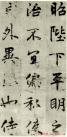 昭陛下平明之
治不宜偏私使
內外異法也侍